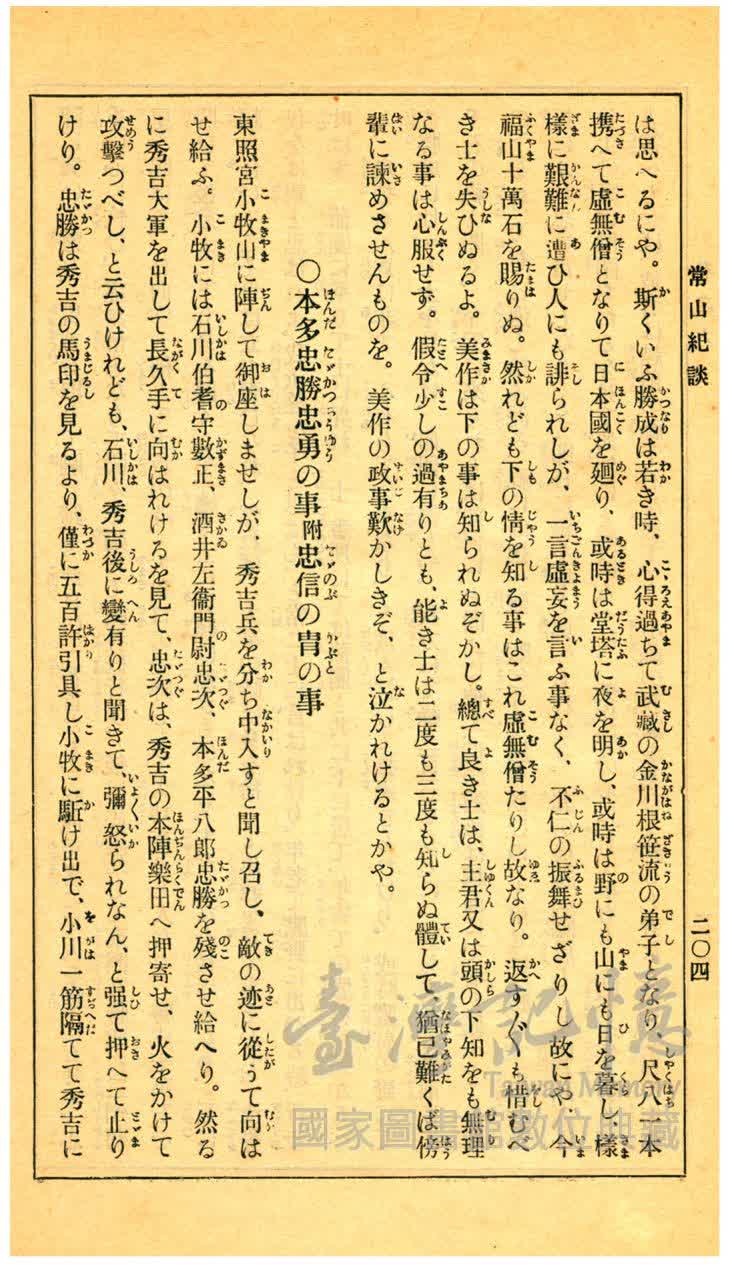 常山紀談
二〇四
は思へるにや。斯くいふ勝成は若き時、心得過ちて武藏の金川根笹流の弟子となり、尺八一本
携へて虛無僧となりて日本國を廻り、或時は堂塔に夜を明し、或時は野にも山にも日を暮し、樣
樣に艱難に遭ひ人にも誹られしが、一言虛妄を言ふ事なく、不仁の振舞せざりし故にや、今
福山十萬石を賜りぬ。然れども下の情を知る事はこれ虛無僧たりし故なり。返すぐも惜むべ
き士を失ひぬるよ。美作は下の事は知られぬぞかし。總て良き士は、主君又は頭の下知をも無理
なる事は心服せず。假令少しの過有りとも、能き士は二度も三度も知らぬ體して、猶已難くば傍
輩に諫めさせんものを。美作の政事歎かしきぞ、と泣かれけるとかや。
〇本多忠勝忠勇の事附忠信の冑の事
東照宮小牧山に陣して御座しませしが、秀吉兵を分ち中入すと聞し召し、敵の迹に從うて向は
せ給ふ。小牧には石川伯耆守數正、酒井左衞門尉忠次、本多平八郎忠勝を殘させ給へり。然る
に秀吉大軍を出して長久手に向はれけるを見て、忠次は、秀吉の本陣樂田へ押寄せ、火をかけて
攻擊つべし、と云ひけれども、石川、秀吉後に變有りと聞きて、彌怒られなん、と强て押へて止り
けり。忠勝は秀吉の馬印を見るより、僅に五百許引具し小牧に駈け出で、小川一筋隔てて秀吉に
臺灣記憶
Taiwan Memory
國家圖書館數位典藏